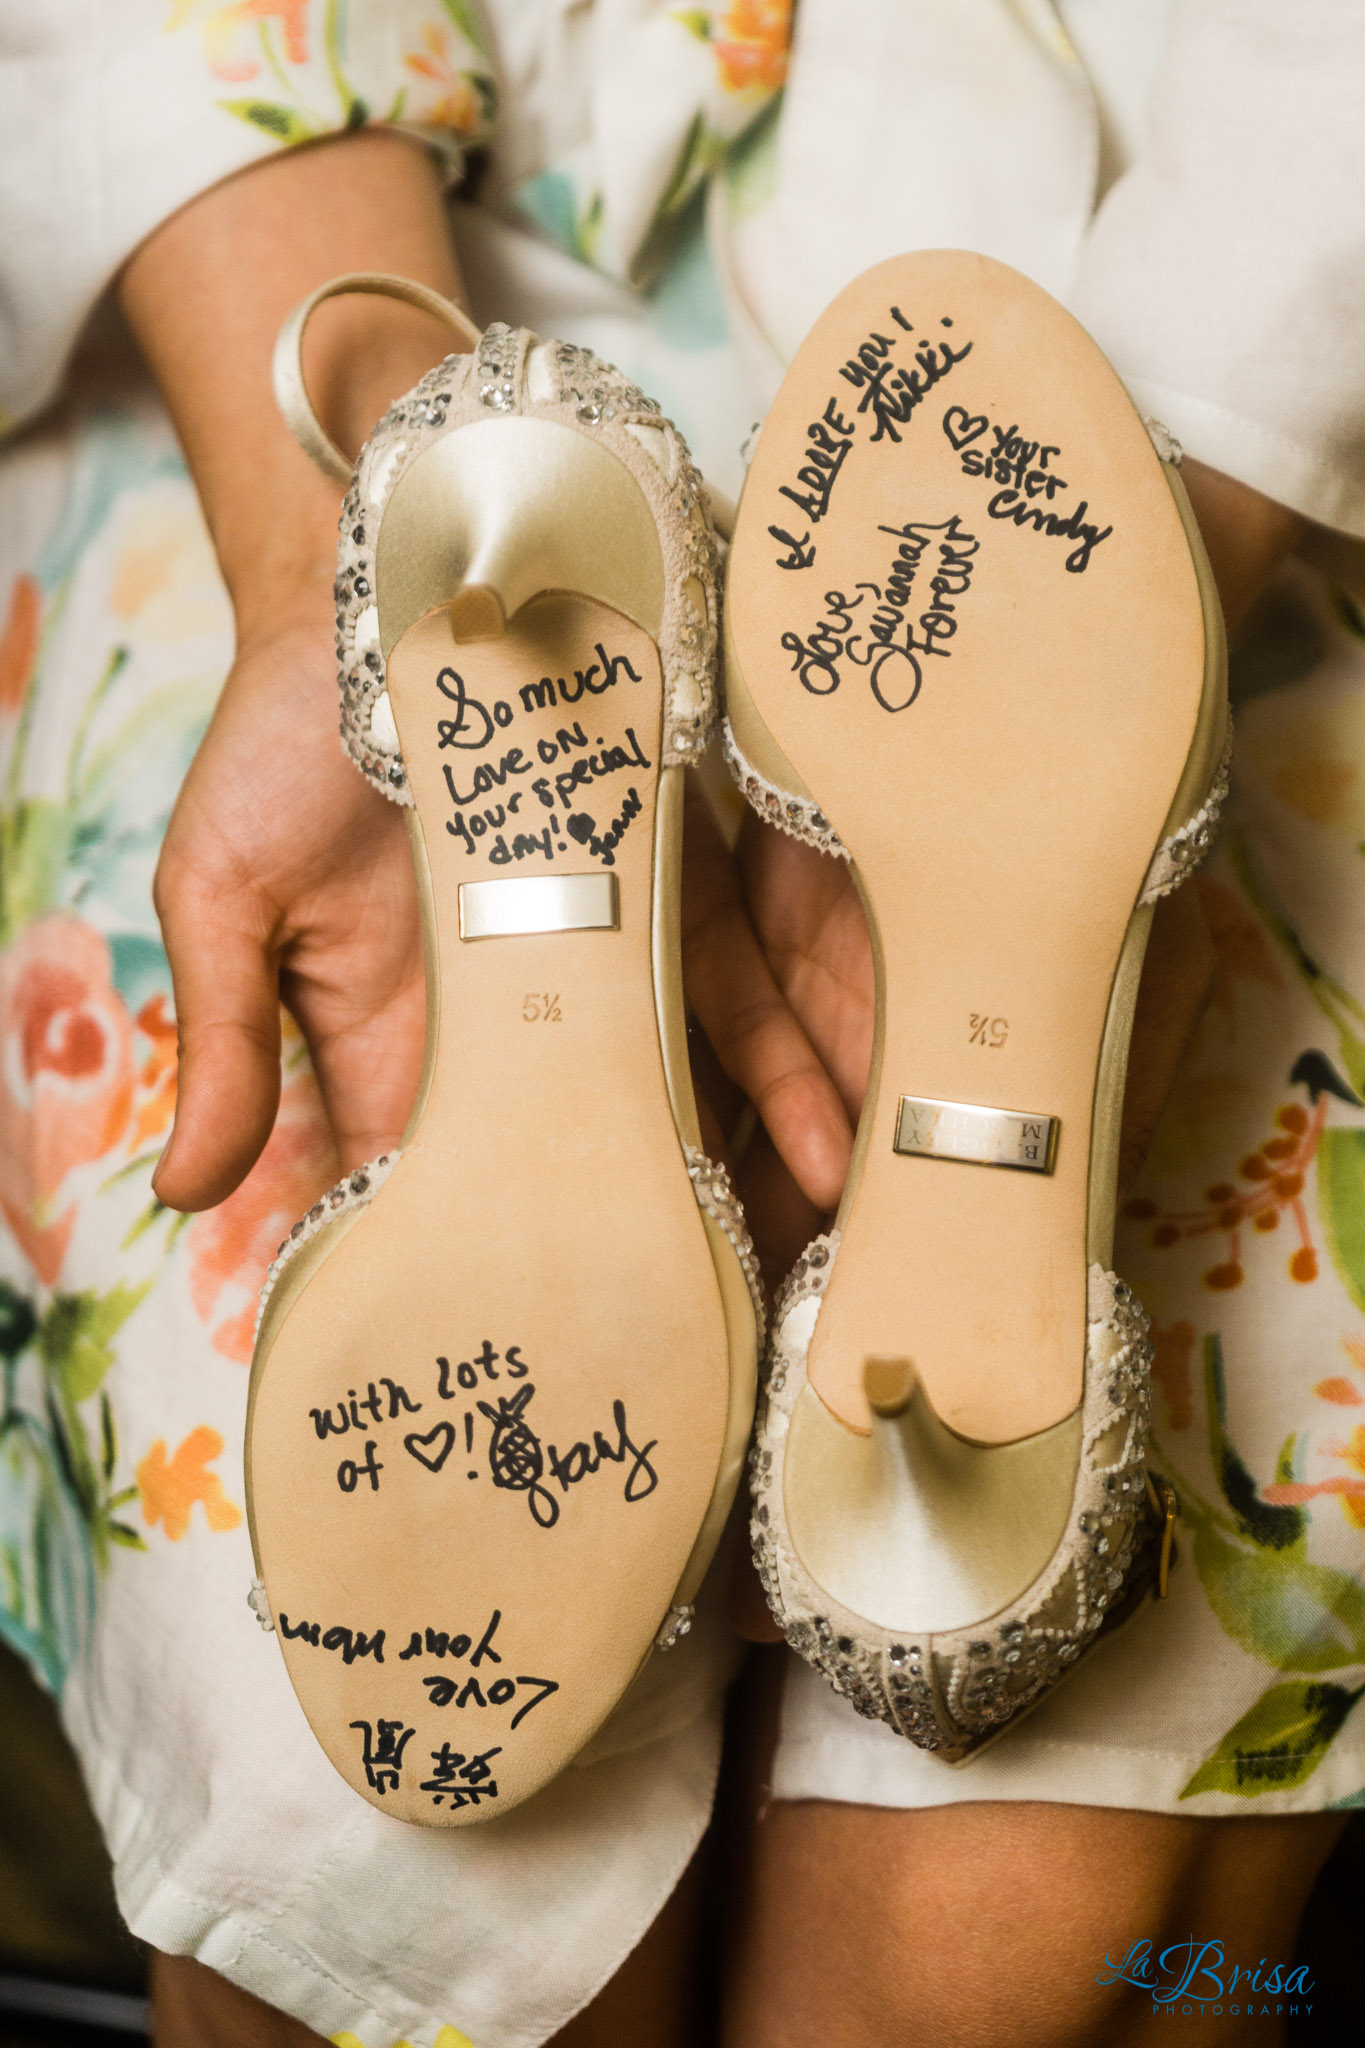 So much
Love on
your special
day! Jenn
5½
with lots
of !
Love
your mom
I ADORE YOU!
Nikki.
Your
sister
Cindy
Love,
Savannah
Forever
5½
B
M
La Brisa
PHOTOGRAPHY